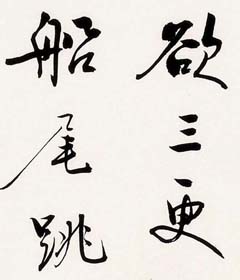 欲三更
船尾跳